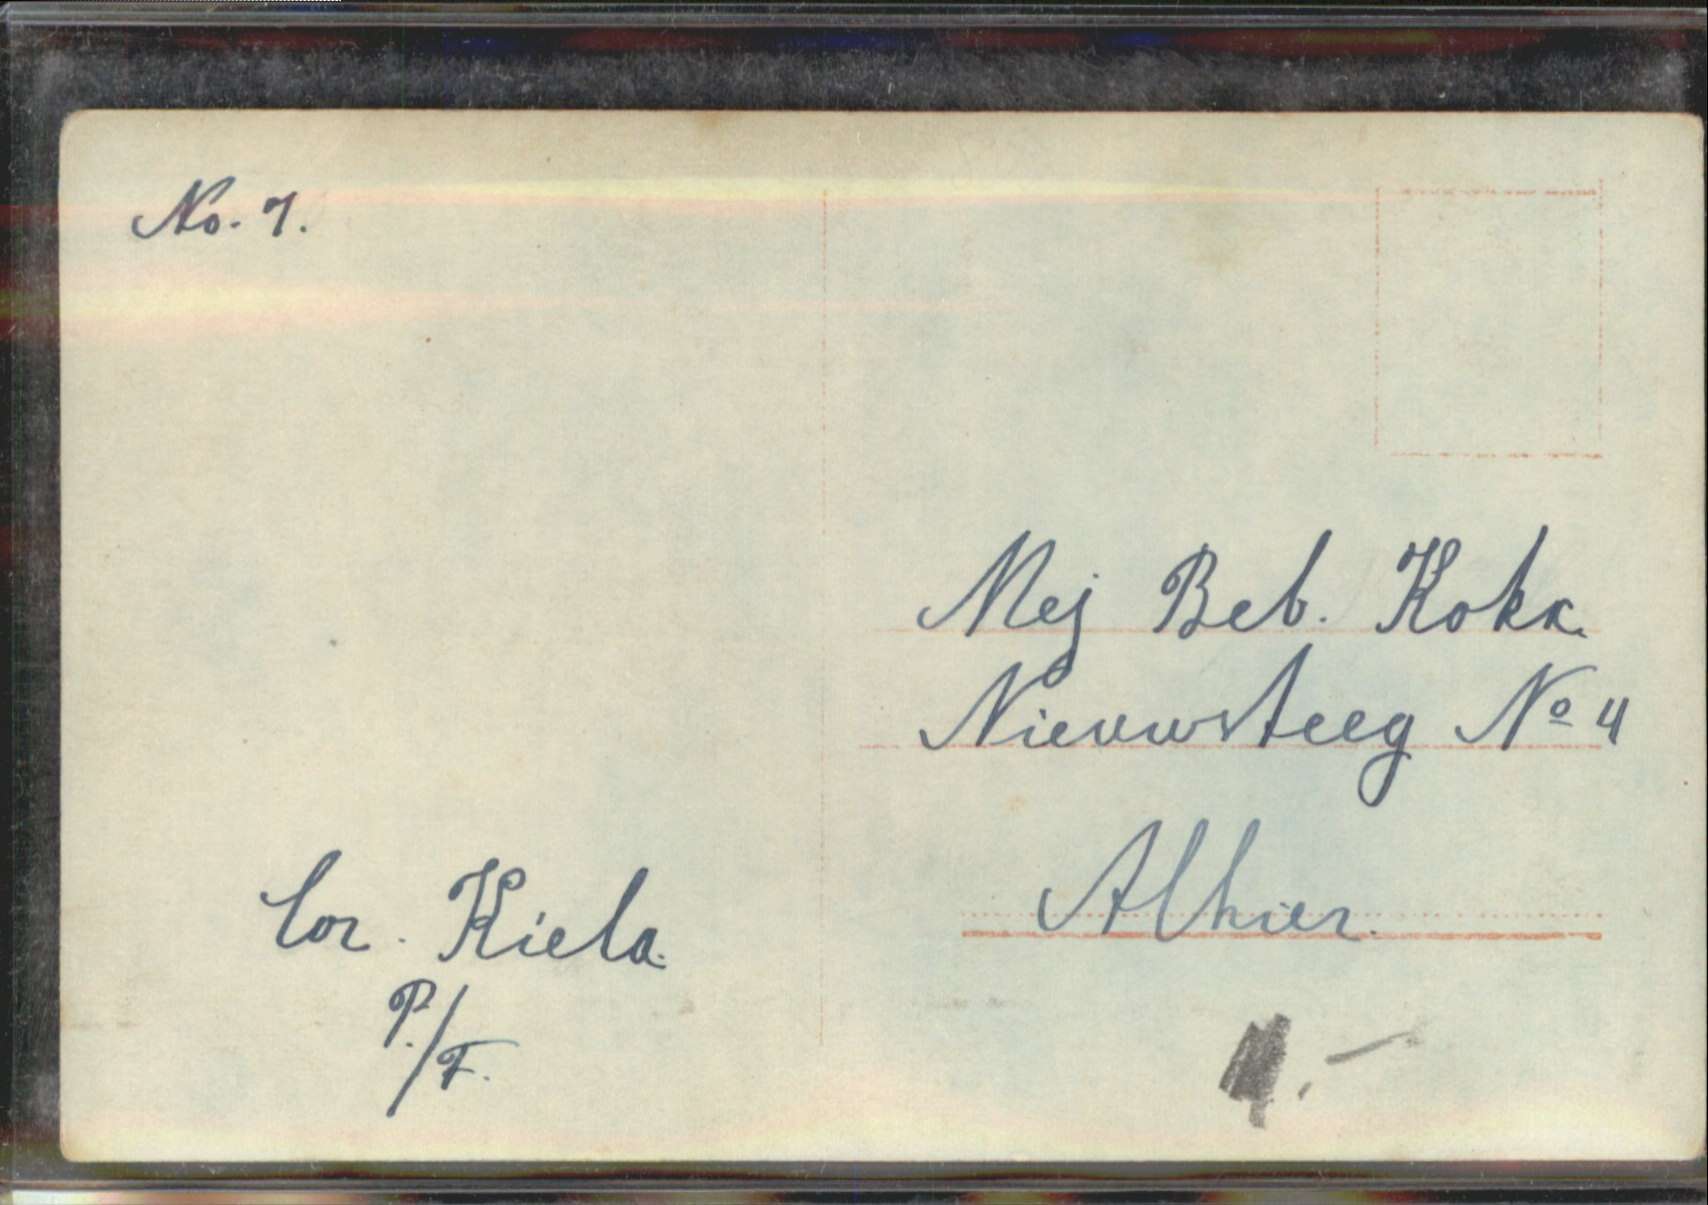 No. 7.
Mej Beb. Kokx.
Nieuwsteeg Nº 4
Alhier.
Cor. Kiela.
P./F.